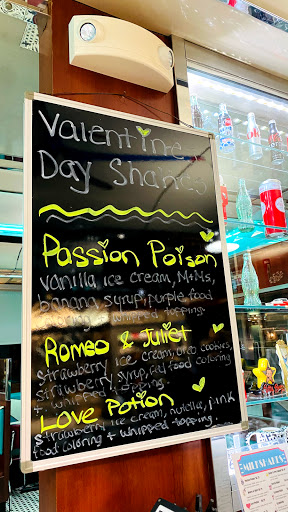 Valentine
Day Shakes
Passion Poison
Vanilla ice cream, M+Ms,
banana syrup, purple food
coloring + whipped topping.
Romeo & Juliet
strawberry ice cream, oreo cookies,
strawberry syrup, red food coloring
+ whipped topping.
Love Potion
strawberry ice cream, nutella, pink
food coloring + whipped topping.
MILKSHAKES